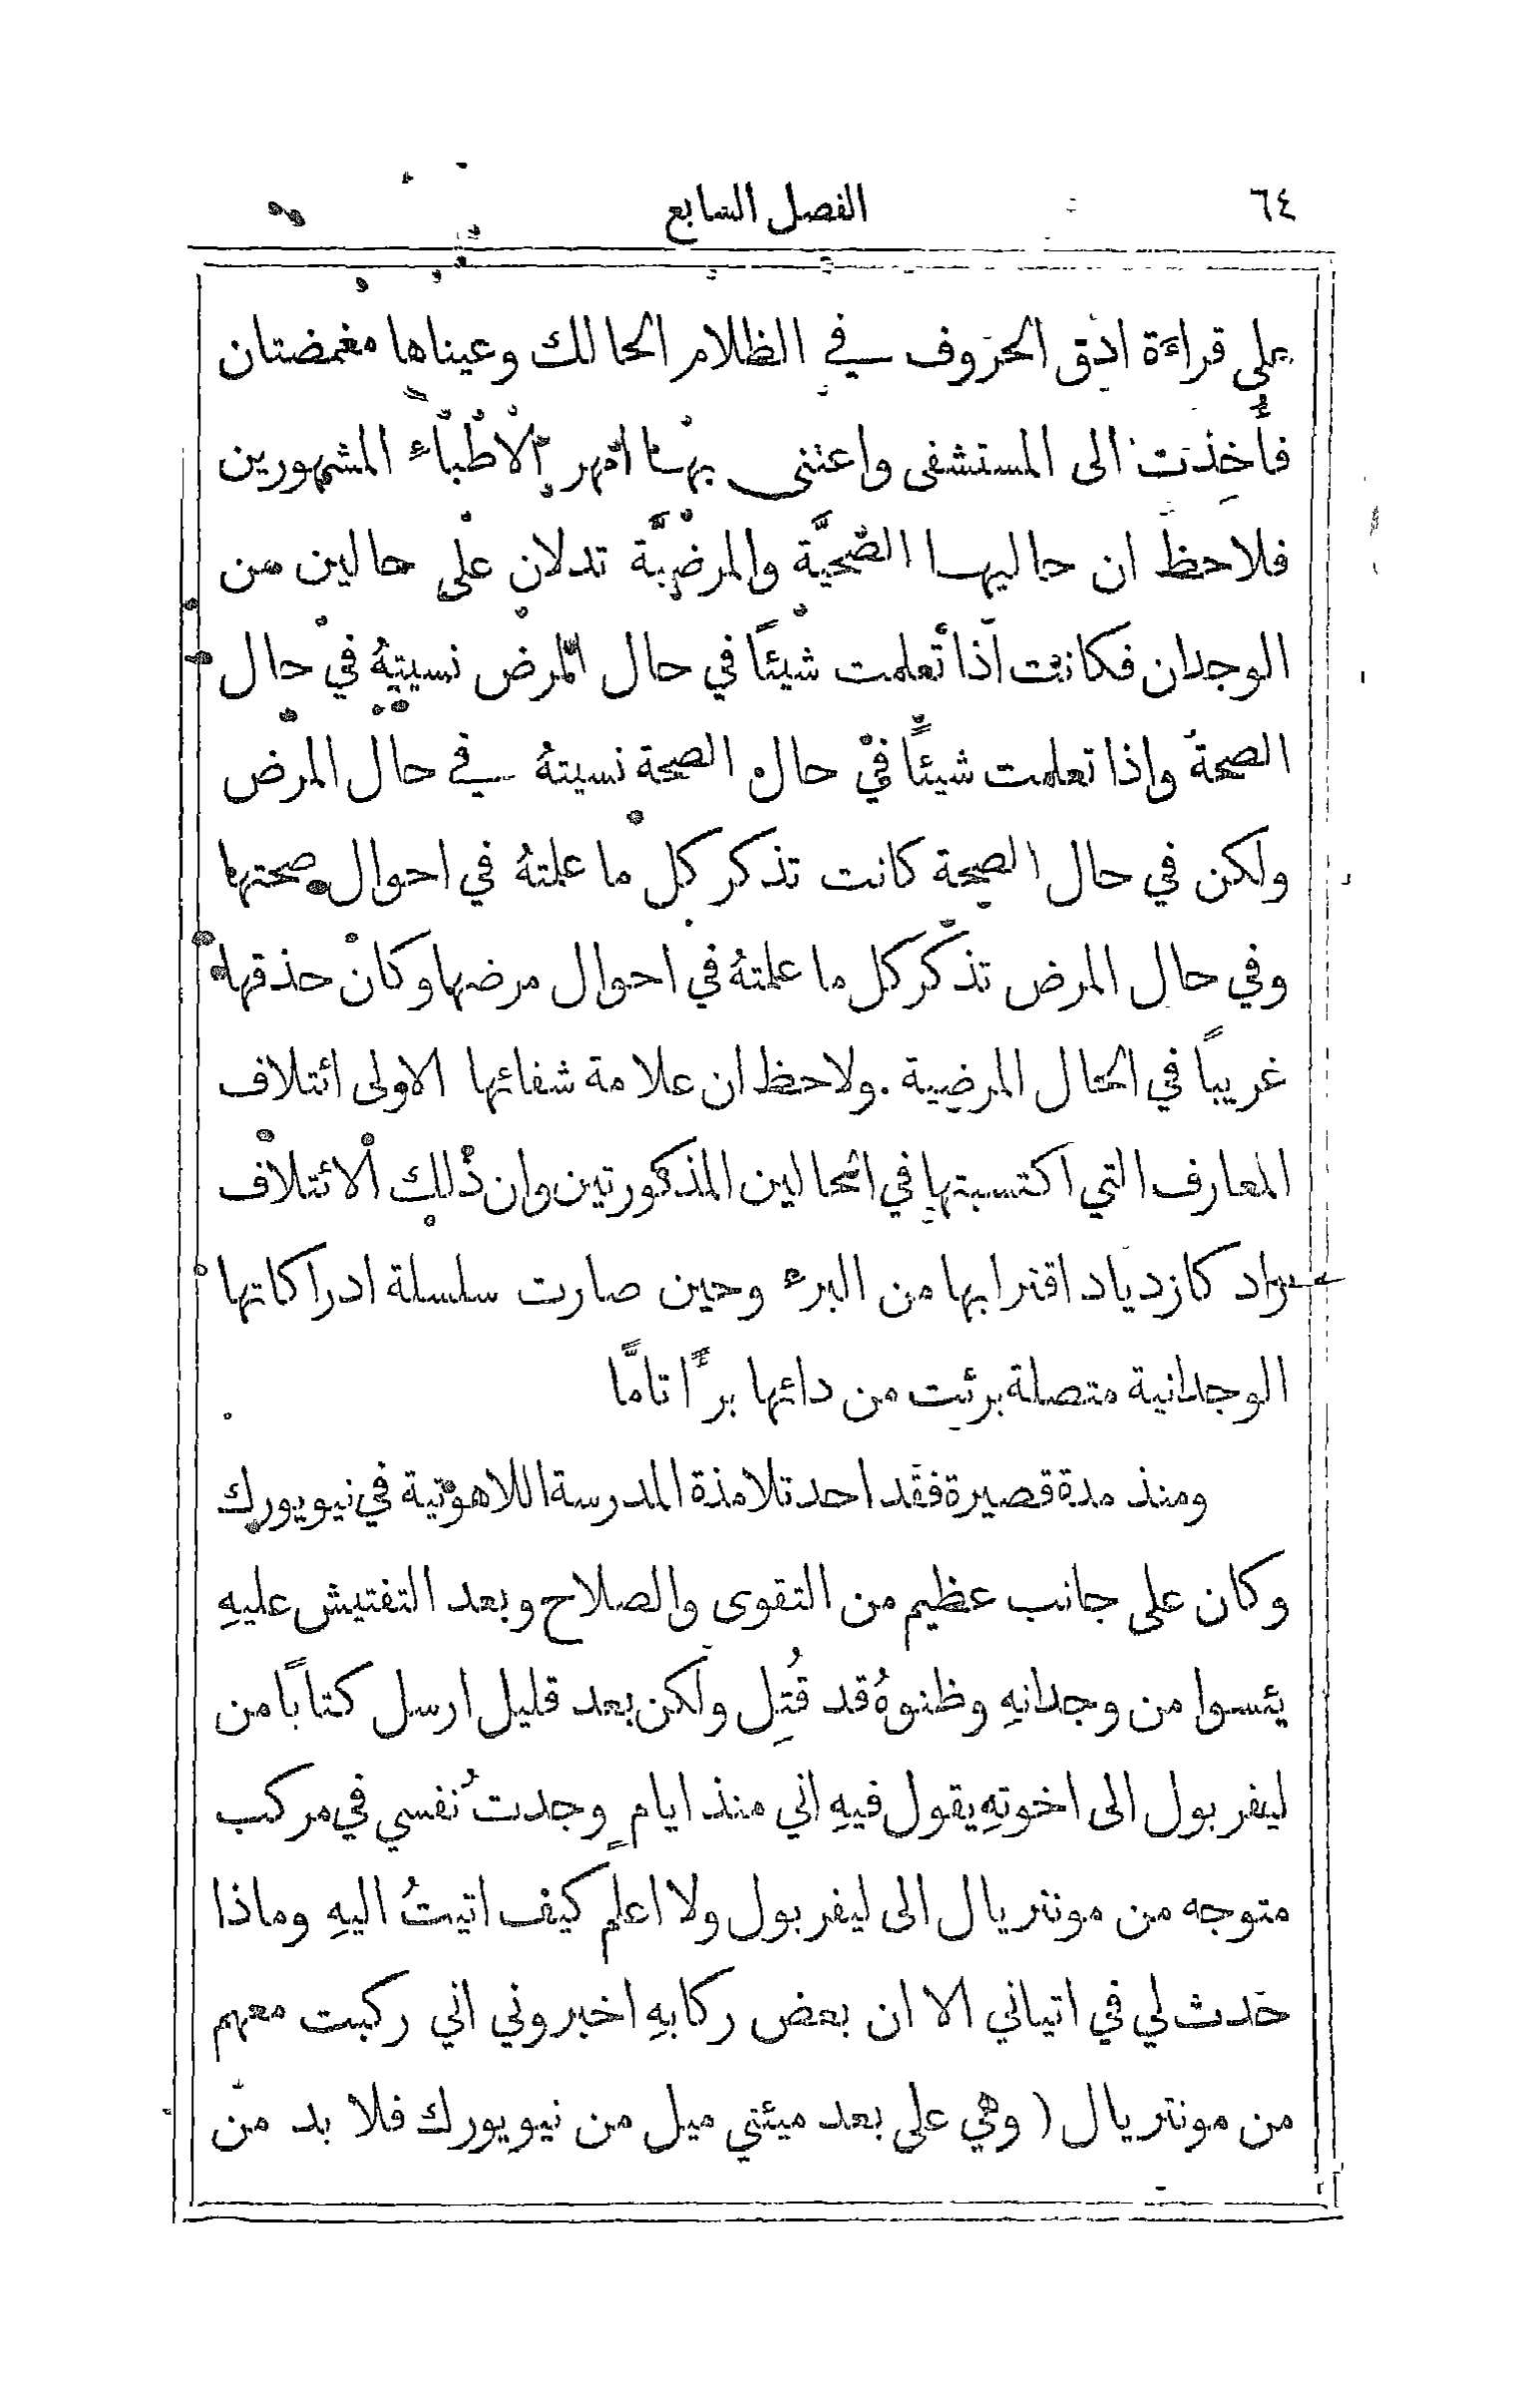 ٦٤
الفصل السابع
على قراءة ادق الحروف في الظلام الحالك وعيناها مغمضتان
فأُخِذت الى المستشفى واعتنى بها امهر الاطباء المشهورين
فلاحظ ان حاليها الصحيَّة والمرضيَّة تدلان على حالين من
الوجدان فكانت اذا تعلمت شيئًا في حال المرض نسيتهُ في حال
الصحة واذا تعلمت شيئًا في حال الصحة نسيتهُ في حال المرض
ولكن في حال الصحة كانت تذكر كل ما علمتهُ في احوال صحتها
وفي حال المرض تذكر كل ما علمتهُ في احوال مرضها وكان حذقها
غريبًا في الحال المرضية . ولاحظ ان علامة شفائها الاولى ائتلاف
المعارف التي اكتسبتها في الحالين المذكورتين وان ذلك الائتلاف
زاد كازدياد اقترابها من البرء وحين صارت سلسلة ادراكاتها
الوجدانية متصلة برئت من دائها برًا تامًّا
ومنذ مدة قصيرة فقد احد تلامذة المدرسة اللاهوتية في نيويورك
وكان على جانب عظيم من التقوى والصلاح وبعد التفتيش عليهِ
يئسوا من وجدانهِ وظنوهُ قد قُتِل ولكن بعد قليل ارسل كتابًا من
ليفربول الى اخوتهِ يقول فيهِ اني منذ ايامٍ وجدتُ نفسي في مركب
متوجه من مونتريال الى ليفربول ولا اعلم كيف اتيتُ اليهِ وماذا
حدث لي في اتياني الا ان بعض ركابهِ اخبروني اني ركبت معهم
من مونتريال ( وهي على بعد ميئتي ميل من نيويورك فلا بد من